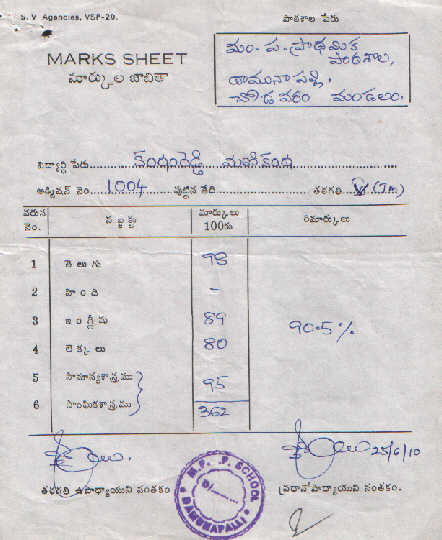 S. V Agencies, VSP-20.
పాఠశాల పేరు
MARKS SHEET
మార్కుల జాబితా
మం. ప. ప్రాథమిక
పాఠశాల,
దామునాపల్లి.
చోడవరం మండలం.
విద్యార్థి పేరు
అడ్మిషన్ నెం. 1004 పుట్టిన తేది తరగతి
వరుస నెం. సబ్జక్టు మార్కులు 100కు రిమార్కులు
1 తెలుగు 98
2 హిందీ -
3 ఇంగ్లీషు 89
4 లెక్కలు 80
90.5%
5 సామాన్యశాస్త్రము
95
6 సాంఘికశాస్త్రము
362
25/6/10
తరగతి ఉపాధ్యాయుని సంతకం ప్రధానోపాధ్యాయుని సంతకం.
M.P. P. SCHOOL
DAMUNAPALLI